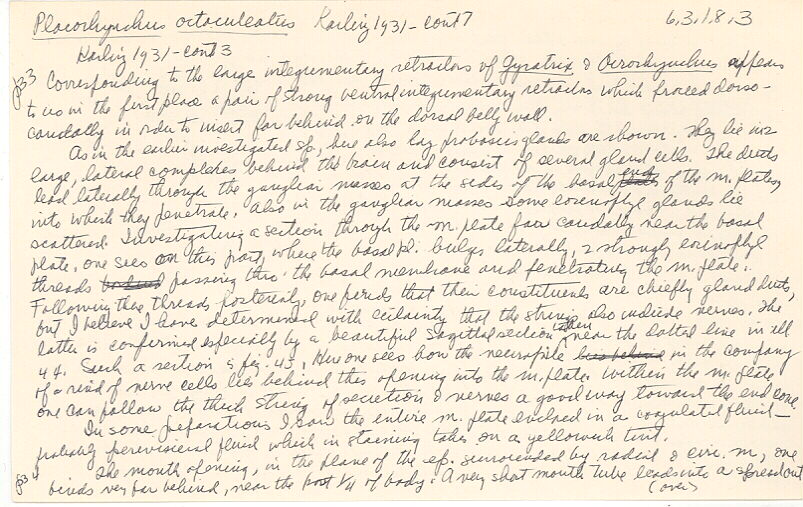 Placorhynchus octaculeatus Karling 1931 - cont 7 6.3.1.8.3
Karling 1931 - cont 3
p33 Corresponding to the large integumentary retractors of Gyratrix & Acrorhynchus appears
to us in the first place a pair of strong ventral integumentary retractors which proceed dorso-
caudally in order to insert far behind on the dorsal belly wall.
As in the earlier investigated sp, here also large proboscis glands are shown. They lie in 2
large, lateral complexes behind the brain and consist of several gland cells. The ducts
lead laterally through the ganglair masses at the sides of the basal end of the m. plates,
into which they penetrate. Also in the ganglair masses some eosinophyl glands lie
scattered. Investigating a section through the m. plate far caudally near the basal
plate, one sees on this part, where the basal pl. bulges laterally, 2 strongly eosinophyl
threads passing thro' the basal membrane and penetrating the m. plate.
Following these threads posteriorly, one finds that their constituents are chiefly gland ducts,
but I believe I have determined with certainty that the strings also include nerves. The
latter is confirmed especially by a beautiful sagittal section taken near the dotted line in ill
44. Such a section is fig. 43. Here one sees how the neuropile in the company
of a kind of nerve cells lies behind this opening into the m. plate. Within the m. plate
one can follow the thick string of secretion & nerves a good way toward the end cone.
In some preparations I saw the entire m. plate enclosed in a coagulated fluid -
probably perivisceral fluid which in staining takes on a yellowish tint.
p34 The mouth opening, in the plane of the ep. surrounded by radial & circ. m, one
finds very far behind, near the post 1/4 of body. A very short mouth tube leads into a spread out
(over)